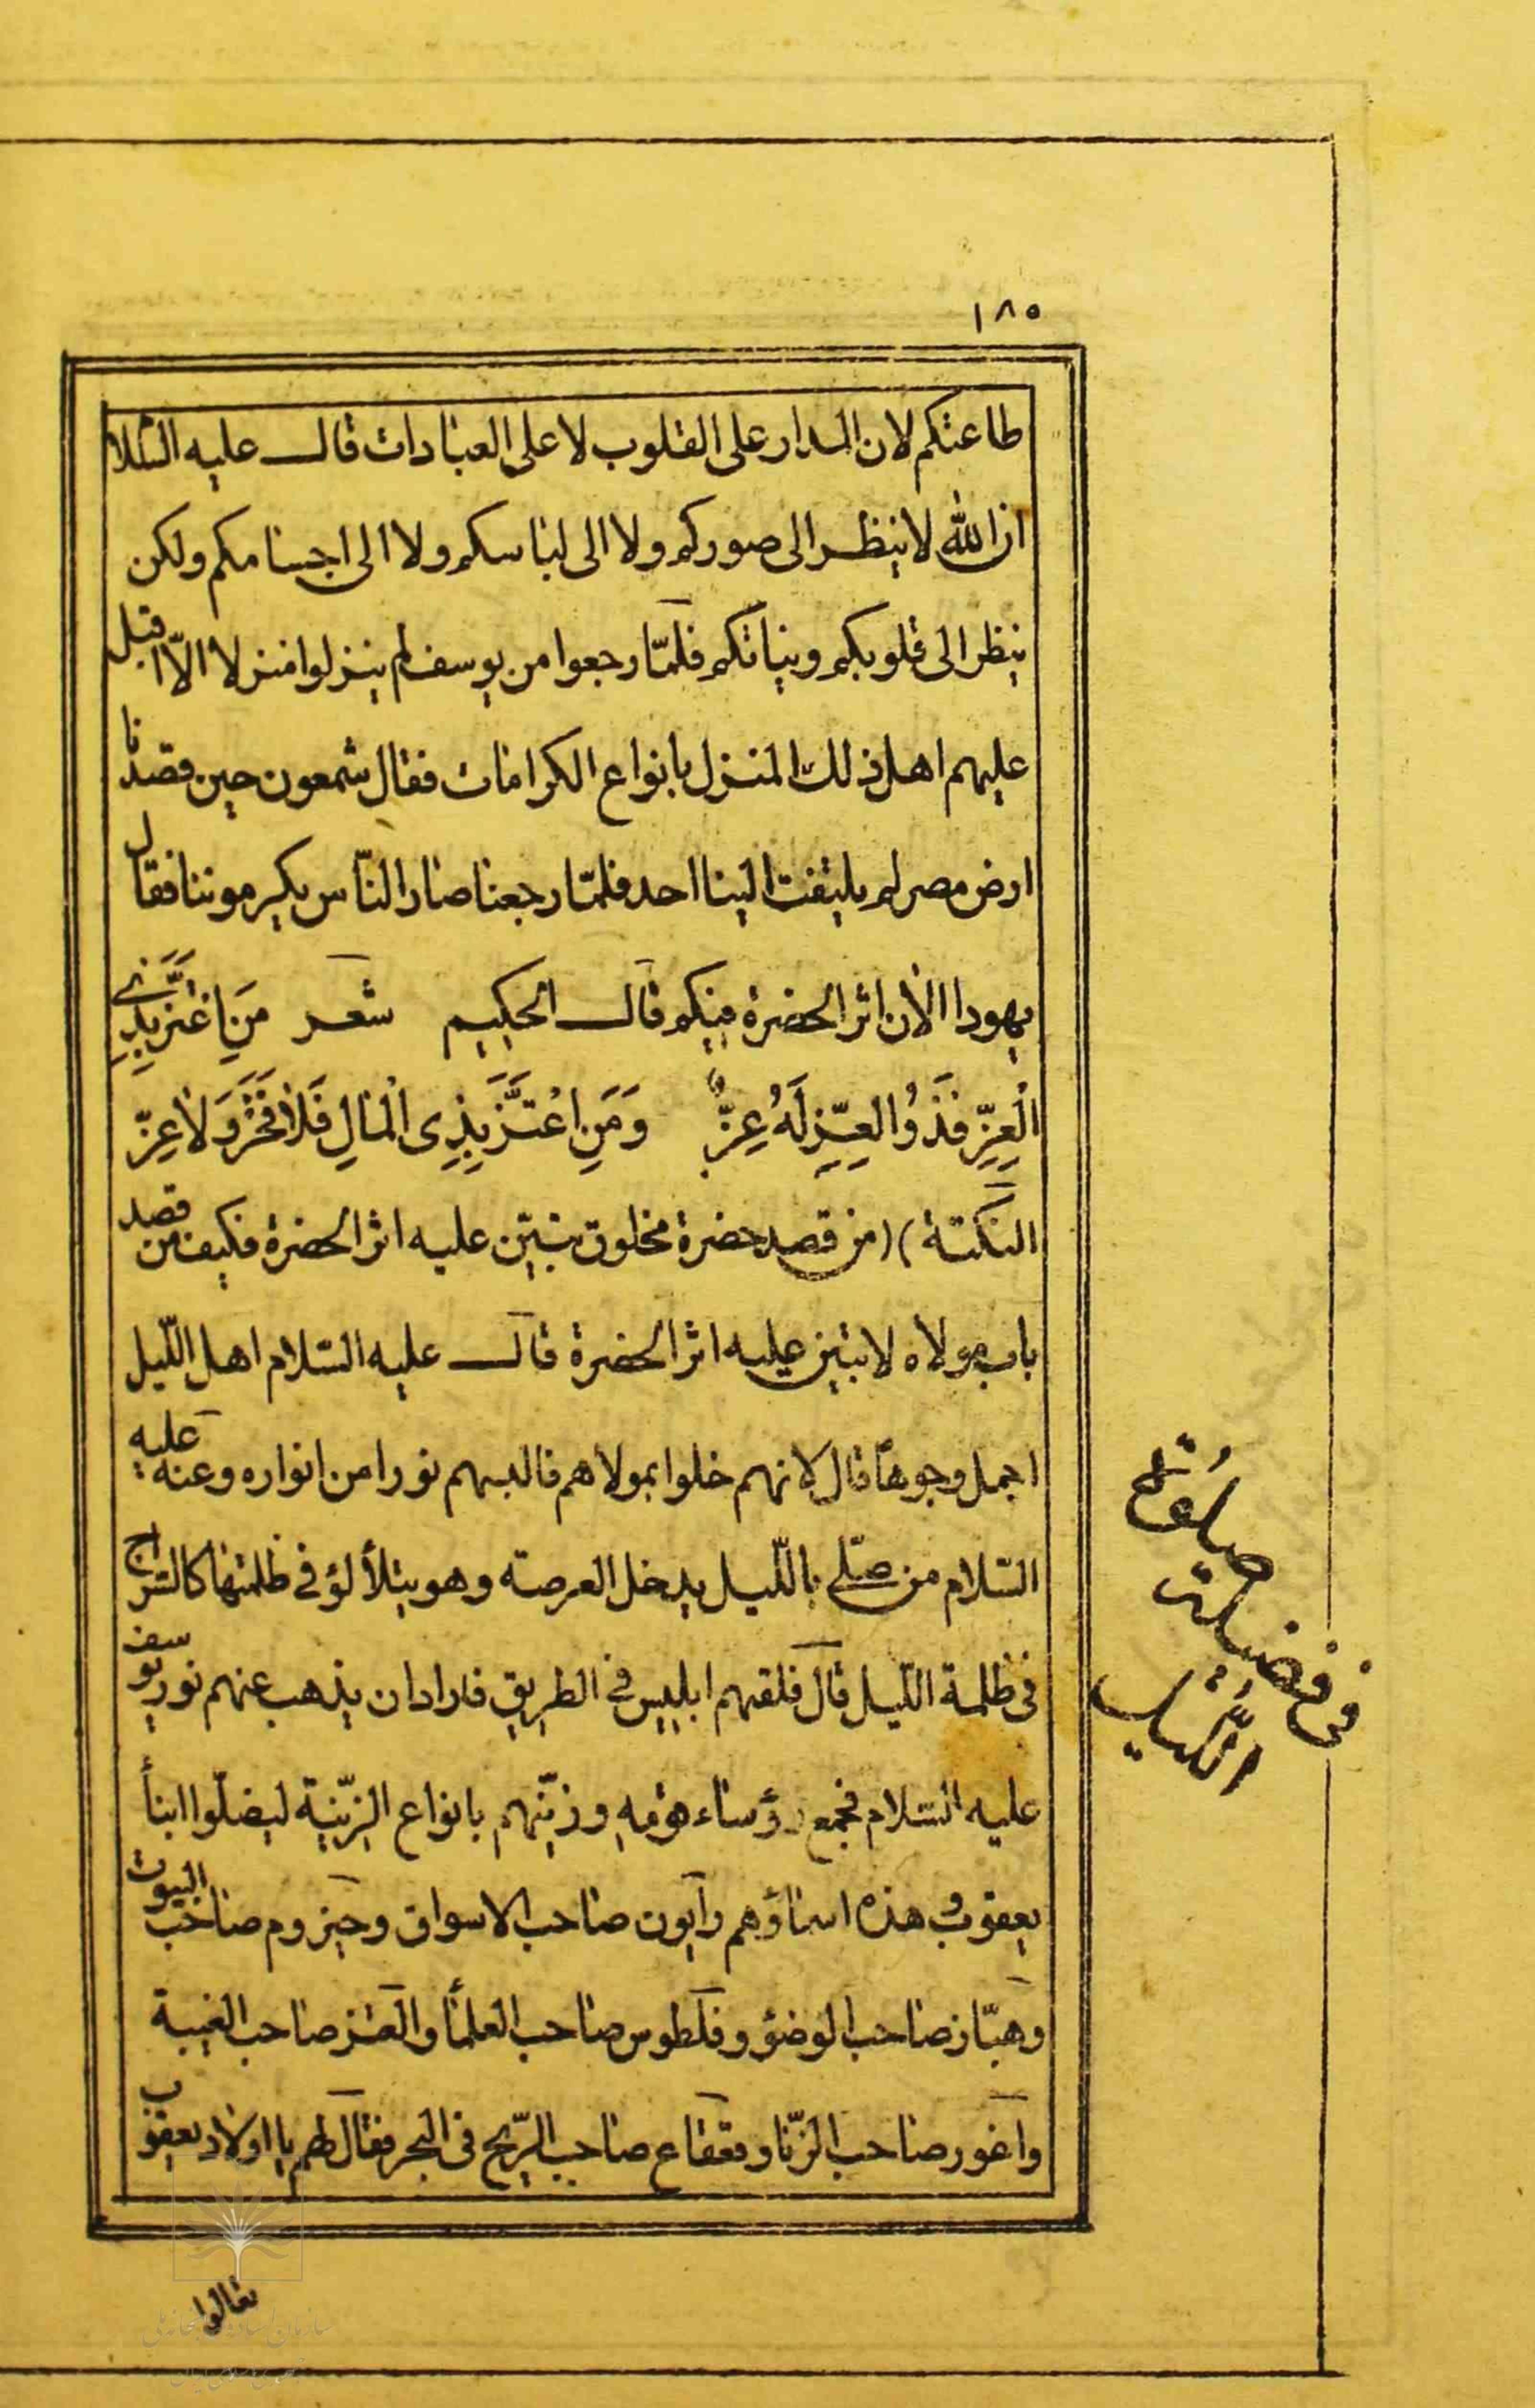 ١٨٥
طاعتكم لان المدار على القلوب لا على العبادات قال عليه السّلا
ان الله لا ينظر الى صوركم ولا الى لباسكم ولا الى اجسامكم ولكن
ينظر الى قلوبكم ونياتكم فلمّا رجعوا من يوسف لم ينزلوا منزلا الّا اقبل
عليهم اهل ذلك المنزل بانواع الكرامات فقال شمعون حين قصدنا
ارض مصر لم يلتفت الينا احد فلمّا رجعنا صار النّاس يكرموننا فقال
يهودا الأن اثر الحضرة فيكم قال الحكيم شعر مَنِ اعْتَزَّ بِذِي
الْعِزِّ فَذُو العِزِّ لَهُ عِزٌّ وَمَنِ اعْتَزَّ بِذِى الْمَالِ فَلَا فَخْرَ وَلَا عِزّ
النكتة) (من قصد حضرة مخلوق تبيّن عليه اثر الحضرة فكيف من قصد
باب مولاه لا تبين عليه اثر الحضرة قال عليه السّلام اهل اللّيل
اجمل وجوهاً قال لانهم خلوا بمولاهم فالبسهم نورا من انواره وعنه عليه
السّلام من صلّى باللّيل يدخل العرصة وهو يتلألؤ فى ظلمتها كالسّراج
فى ظلمة اللّيل قال فلقهم ابليس فى الطريق فاراد ان يذهب عنهم نور يوسف
عليه السّلام فجمع رؤساء قومه وزيّنهم بانواع الزّينة ليضلّوا ابنأ
يعقوب و هذه اسماؤهم رآبون صاحب الاسواق وحيزوم صاحب البيوت
وهبّار صاحب الوضؤ وفلطوس صاحب العلمأ و صاحب الغيبة
واغور صاحب الزّنا وقعقاع صاحب الرّيح فى البحر فقال لهم يا اولاد يعقوب
تعالوا
فى فضيلت
صلوة
اللّيل